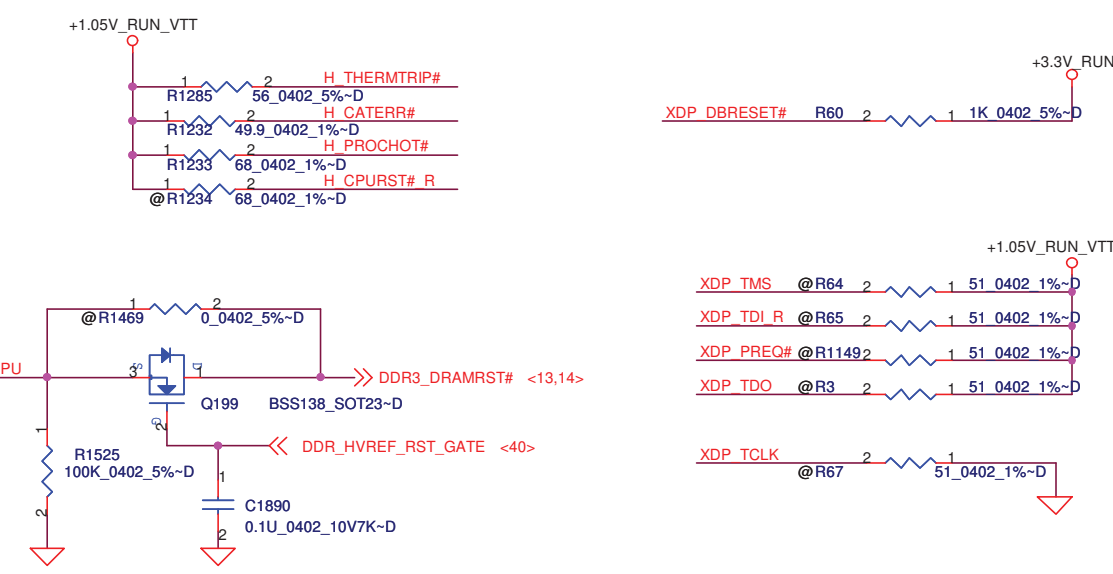 +1.05V_RUN_VTT
1 2 H_THERMTRIP#
R1285 56_0402_5%~D
1 2 H_CATERR#
R1232 49.9_0402_1%~D
1 2 H_PROCHOT#
R1233 68_0402_1%~D
1 2 H_CPURST#_R
@R1234 68_0402_1%~D
+3.3V_RUN
XDP_DBRESET# R60 2 1 1K_0402_5%~D
+1.05V_RUN_VTT
XDP_TMS @R64 2 1 51_0402_1%~D
XDP_TDI_R @R65 2 1 51_0402_1%~D
XDP_PREQ# @R1149 2 1 51_0402_1%~D
XDP_TDO @R3 2 1 51_0402_1%~D
XDP_TCLK 2 1
@R67 51_0402_1%~D
1 2
@R1469 0_0402_5%~D
PU 3 S D 1 DDR3_DRAMRST# <13,14>
Q199 BSS138_SOT23~D
G 2
DDR_HVREF_RST_GATE <40>
1
R1525
100K_0402_5%~D
2
1
C1890
0.1U_0402_10V7K~D
2